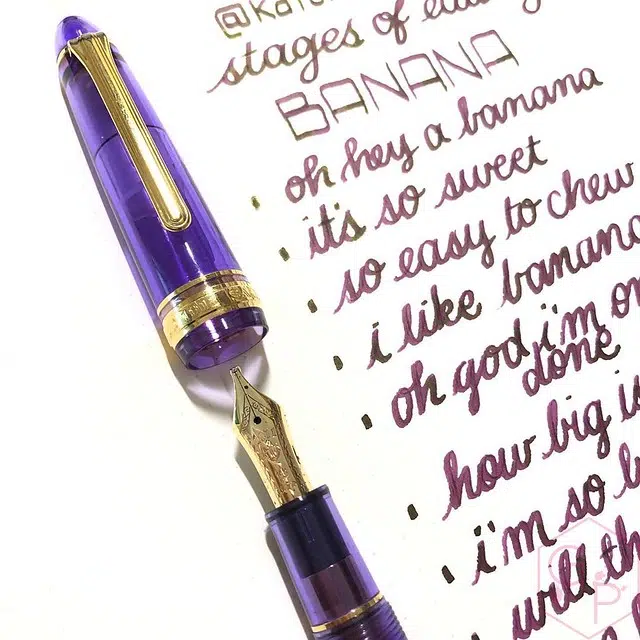 stages of
BANANA
oh hey a banana
it's so sweet
so easy to chew
i like
oh god i'm
done
how big
i'm so
will
CP